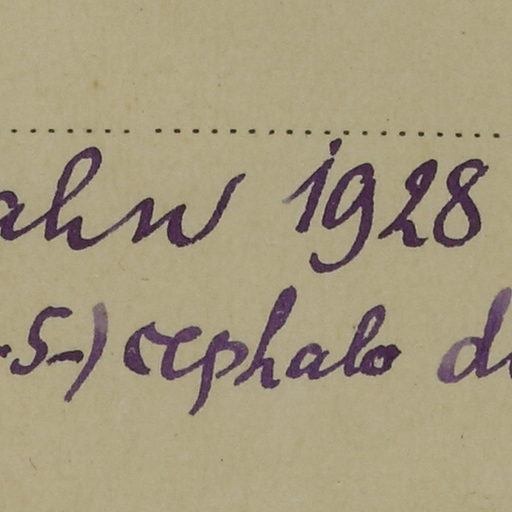 ahn 1928
-5-) cephalo d